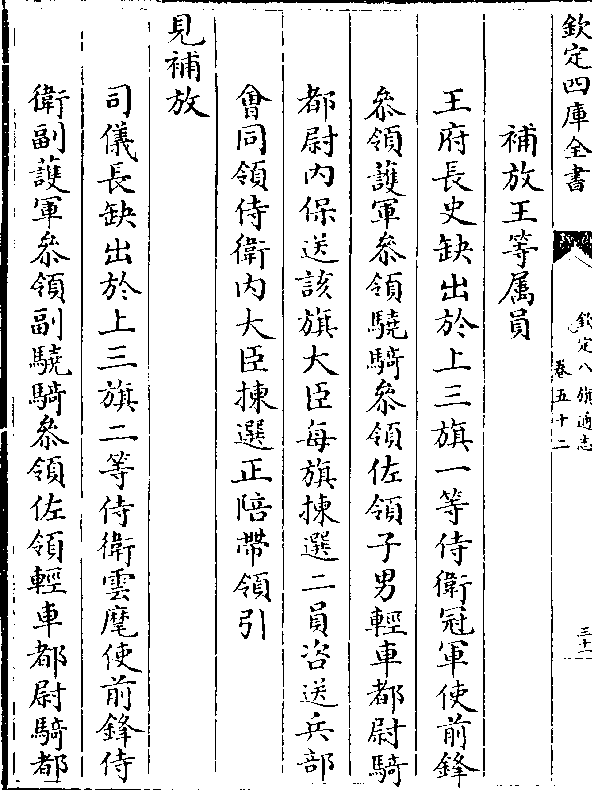 欽定四庫全書
欽定八旗通志
卷五十二
三十一
補放王等属員
王府長史缺出於上三旗一等侍衛冠軍使前鋒
叅領護軍叅領驍騎叅領佐領子男輕車都尉騎
都尉内保送該旗大臣每旗揀選二員咨送兵部
會同領侍衛内大臣揀選正陪帶領引
見補放
司儀長缺出於上三旗二等侍衛雲麾使前鋒侍
衛副護軍叅領副驍騎叅領佐領輕車都尉騎都